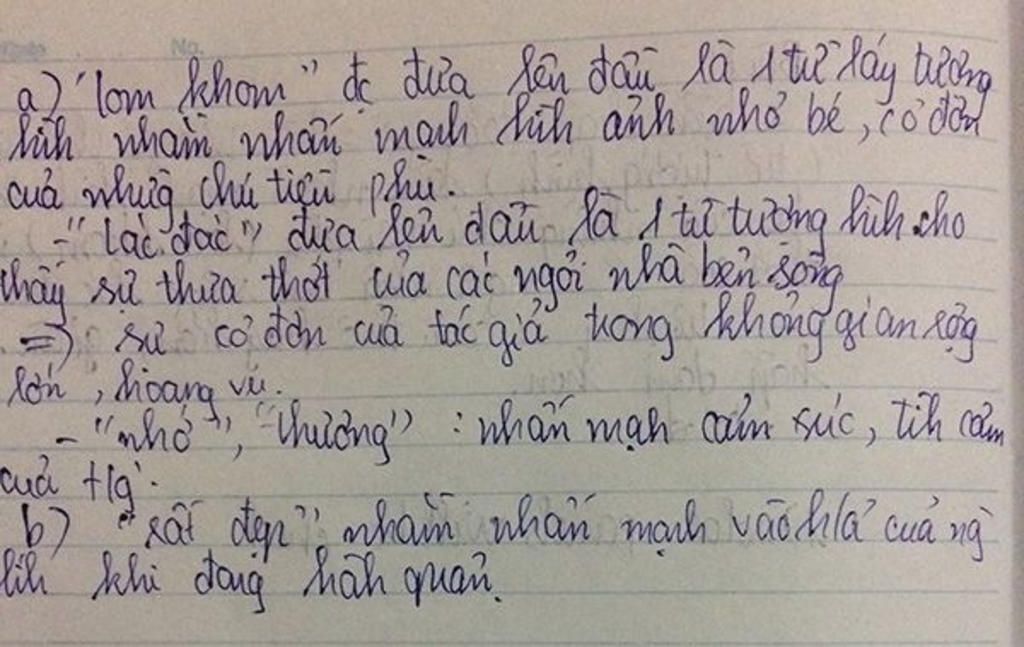 a) "lom khom" đc đưa lên đầu là 1 từ láy tượng
hình nhằm nhấn mạnh hình ảnh nhỏ bé, cô đơn
của những chú tiều phu.
- "Lác đác" đưa lên đầu là 1 từ tượng hình cho
thấy sự thưa thớt của các ngôi nhà bên sông
=> sự cô đơn của tác giả trong không gian rộng
lớn, hoang vu.
- "nhớ", "thương" : nhấn mạnh cảm xúc, tình cảm
của t/g.
b) "rất đẹp" nhằm nhấn mạnh vào h/ả của ng
lính khi đang hành quân.